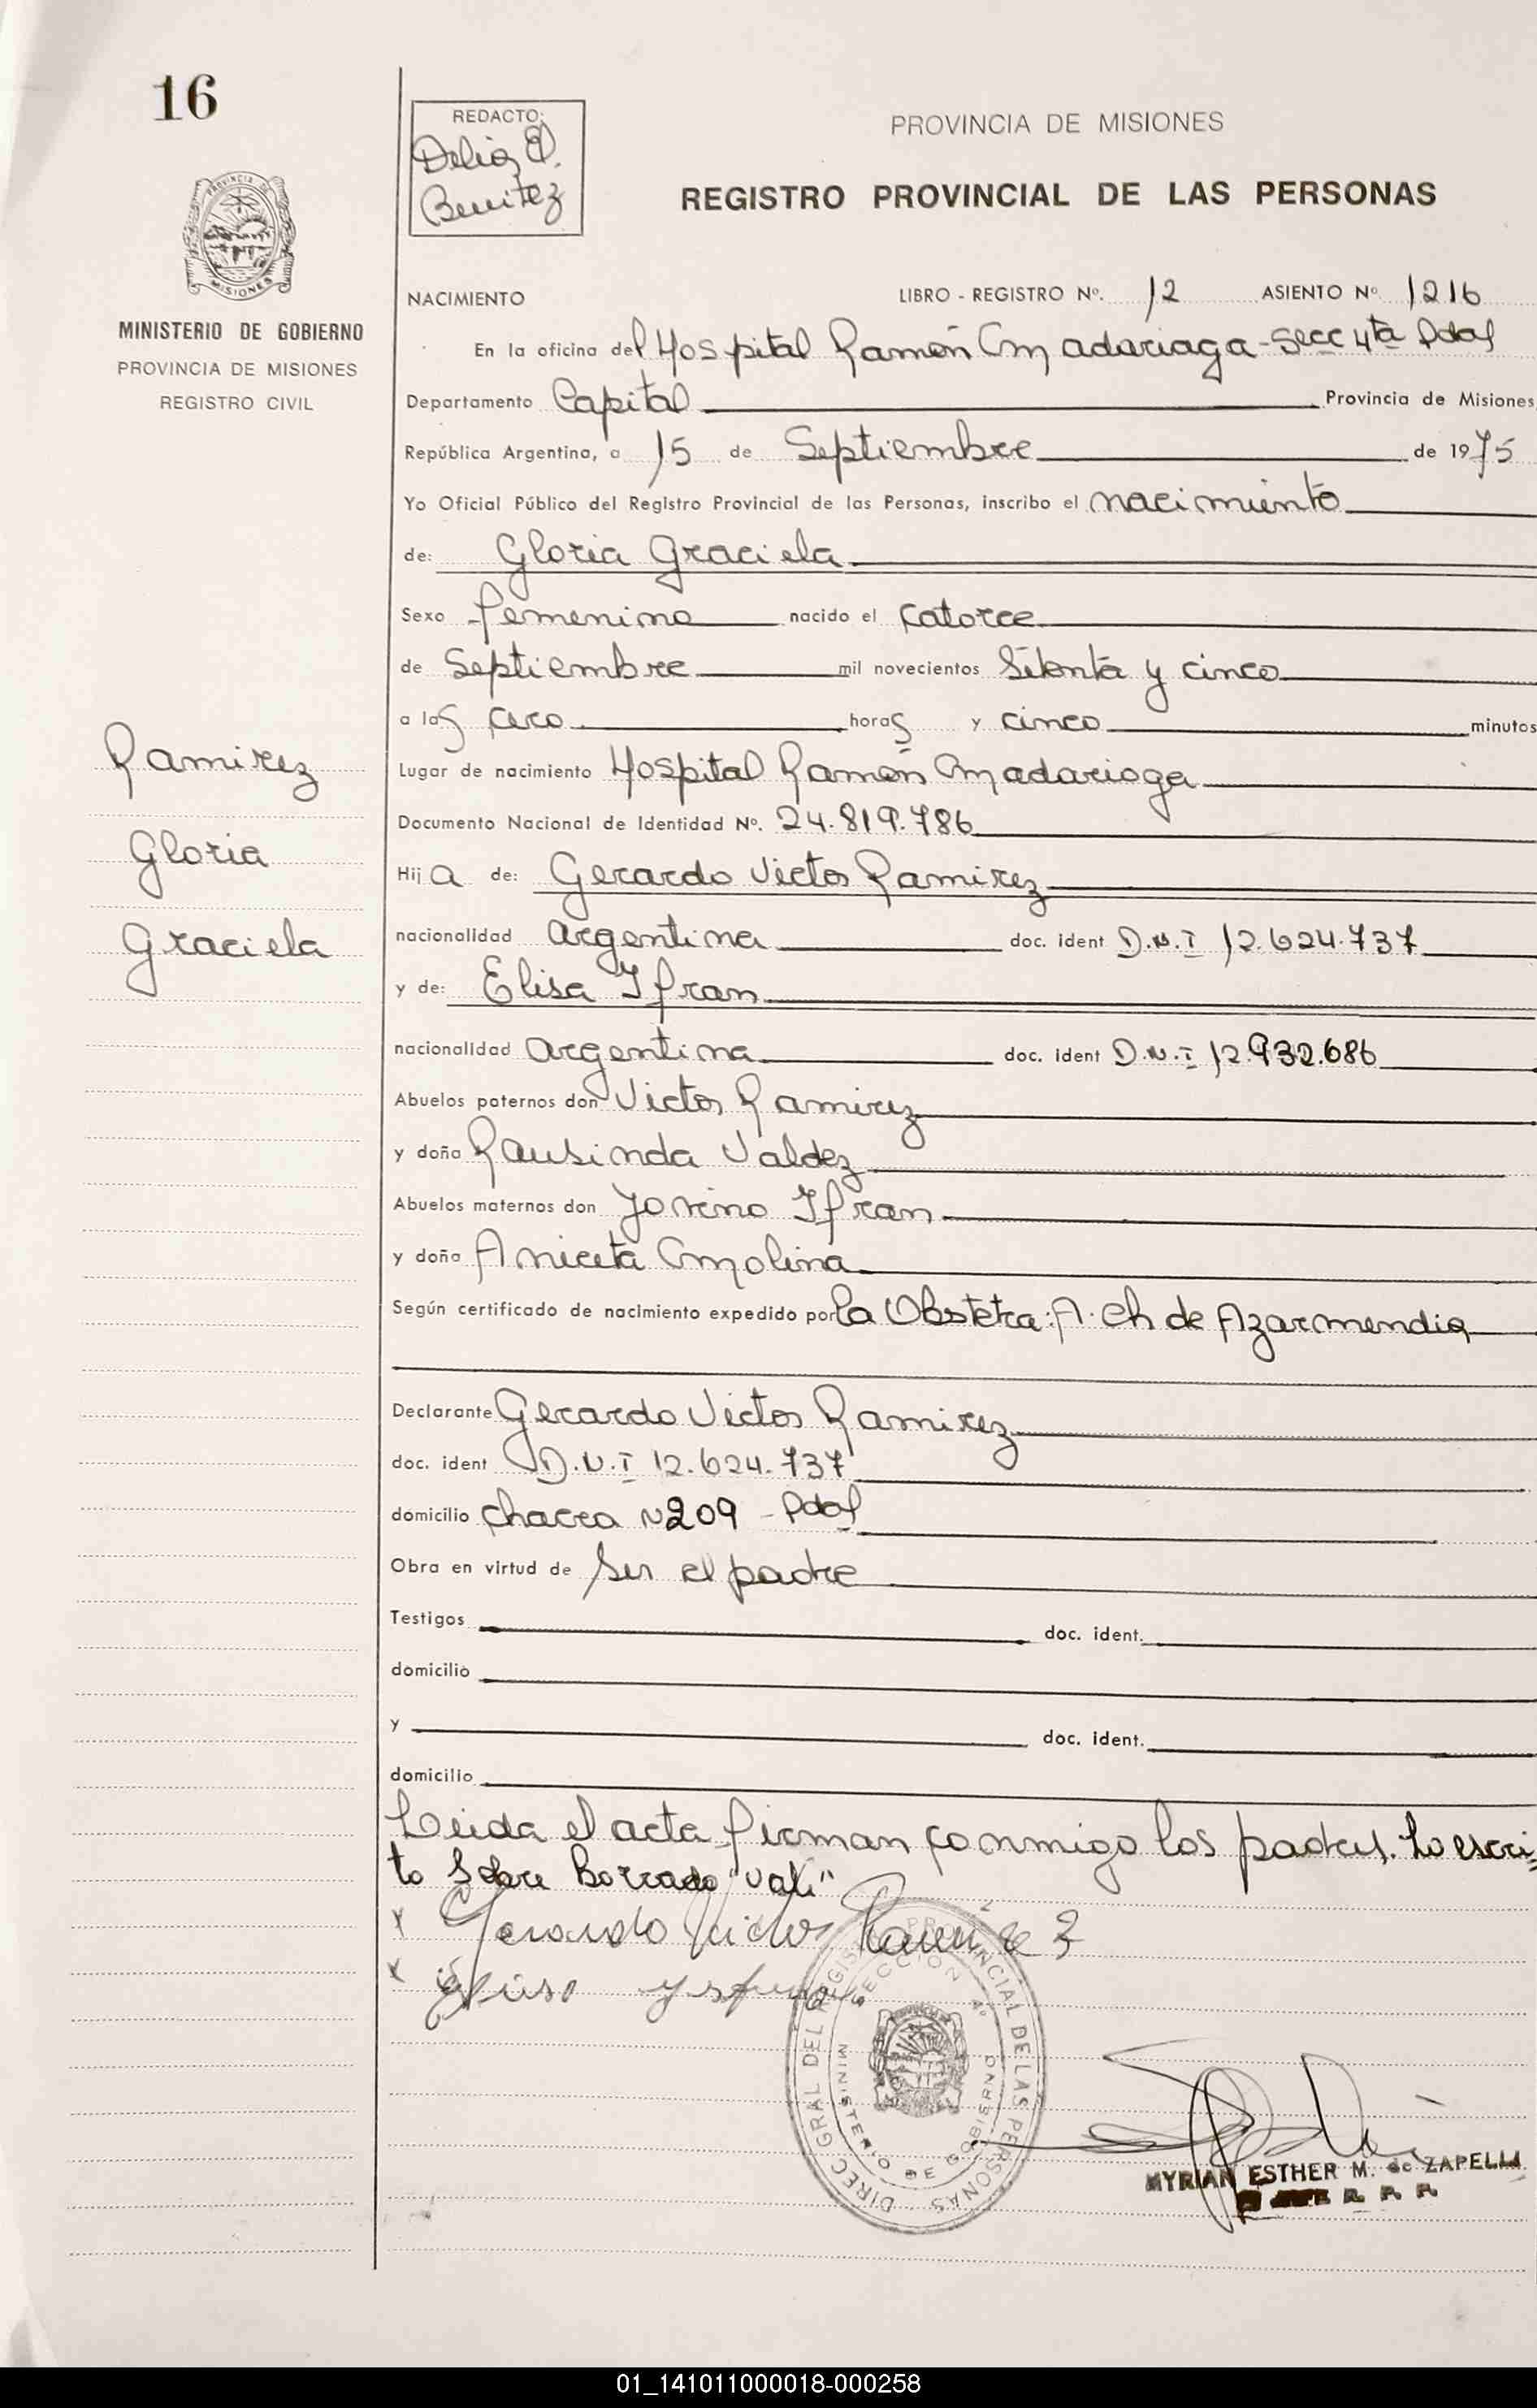 16
REDACTO:
Delia E.
Benitez
PROVINCIA DE MISIONES
REGISTRO PROVINCIAL DE LAS PERSONAS
PROVINCIA DE
MISIONES
MINISTERIO DE GOBIERNO
PROVINCIA DE MISIONES
REGISTRO CIVIL
NACIMIENTO LIBRO - REGISTRO Nº. 12 ASIENTO Nº 1216
En la oficina del Hospital Ramón Madariaga - Secc 4ta Pdas
Departamento Capital Provincia de Misiones
República Argentina, a 15 de Septiembre de 1975
Yo Oficial Público del Registro Provincial de las Personas, inscribo el nacimiento
de: Gloria Graciela
Sexo femenino nacido el catorce
de Septiembre mil novecientos Setenta y cinco
a las cero horas y cinco minutos
Ramirez
Gloria
Graciela
Lugar de nacimiento Hospital Ramón Madariaga
Documento Nacional de Identidad Nº. 24.819.786
Hija de: Gerardo Victor Ramirez
nacionalidad argentina doc. ident D.N.I 12.624.737
y de: Elisa Ifran
nacionalidad argentina doc. ident D.N.I 12.932.686
Abuelos paternos don Victor Ramirez
y doña Rausinda Valdez
Abuelos maternos don Jovino Ifran
y doña Aniceta Molina
Según certificado de nacimiento expedido por la Obstetra: A. Ch de Azarmendia
Declarante Gerardo Victor Ramirez
doc. ident D.N.I 12.624.737
domicilio chacra Nº 209 - Pdas
Obra en virtud de Ser el padre
Testigos doc. ident.
domicilio
y doc. ident.
domicilio
Leida el acta firman conmigo los padres. Lo escri-
to Sobre Borrado "vale"
x Gerardo Victor Ramirez
x
DIREC. GRAL DEL REGISTRO PROVINCIAL DE LAS PERSONAS
SECCION 4º
MINISTERIO DE GOBIERNO
MYRIAN ESTHER M. de ZAPELLI
R. P. P.
01_141011000018-000258